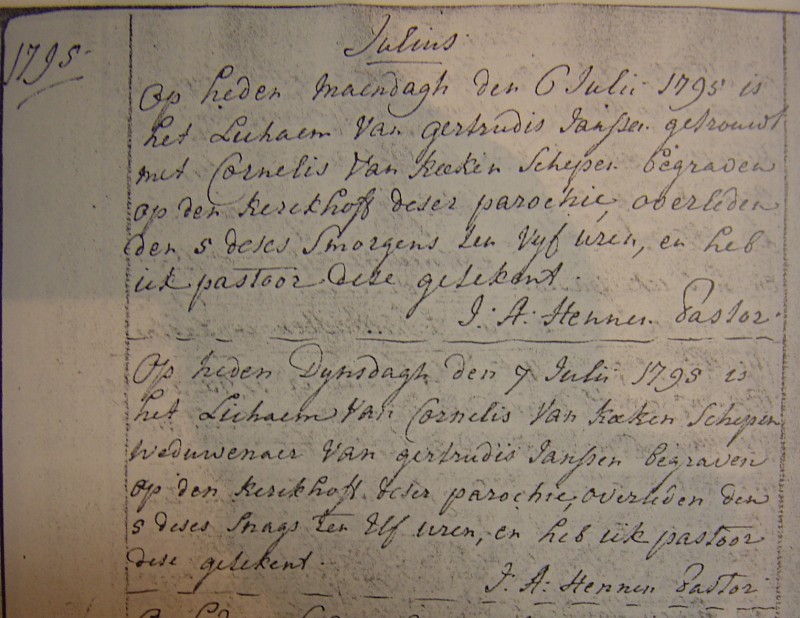 1795.
Julius
Op heden Maendagh den 6 Julii 1795 is
het Lichaem Van gertrudis Janssen getrouwt
met Cornelis Van Kœken Schepen begraven
op den Kerckhoff deser parochie, overleden
den 5 deses Smorgens ten Vyf uren, en heb
ick pastoor dese geteekent.
J: A: Hennen Pastor.
Op heden Dynsdagh den 7 Julii 1795 is
het Lichaem Van Cornelis Van Kœken Schepen
Weduwenaer Van gertrudis Janssen begraven
op den Kerckhoff deser parochie, overleden den
5 deses Snags ten Elf uren, en heb ick pastoor
dese geteekent.
J. A: Hennen Pastor